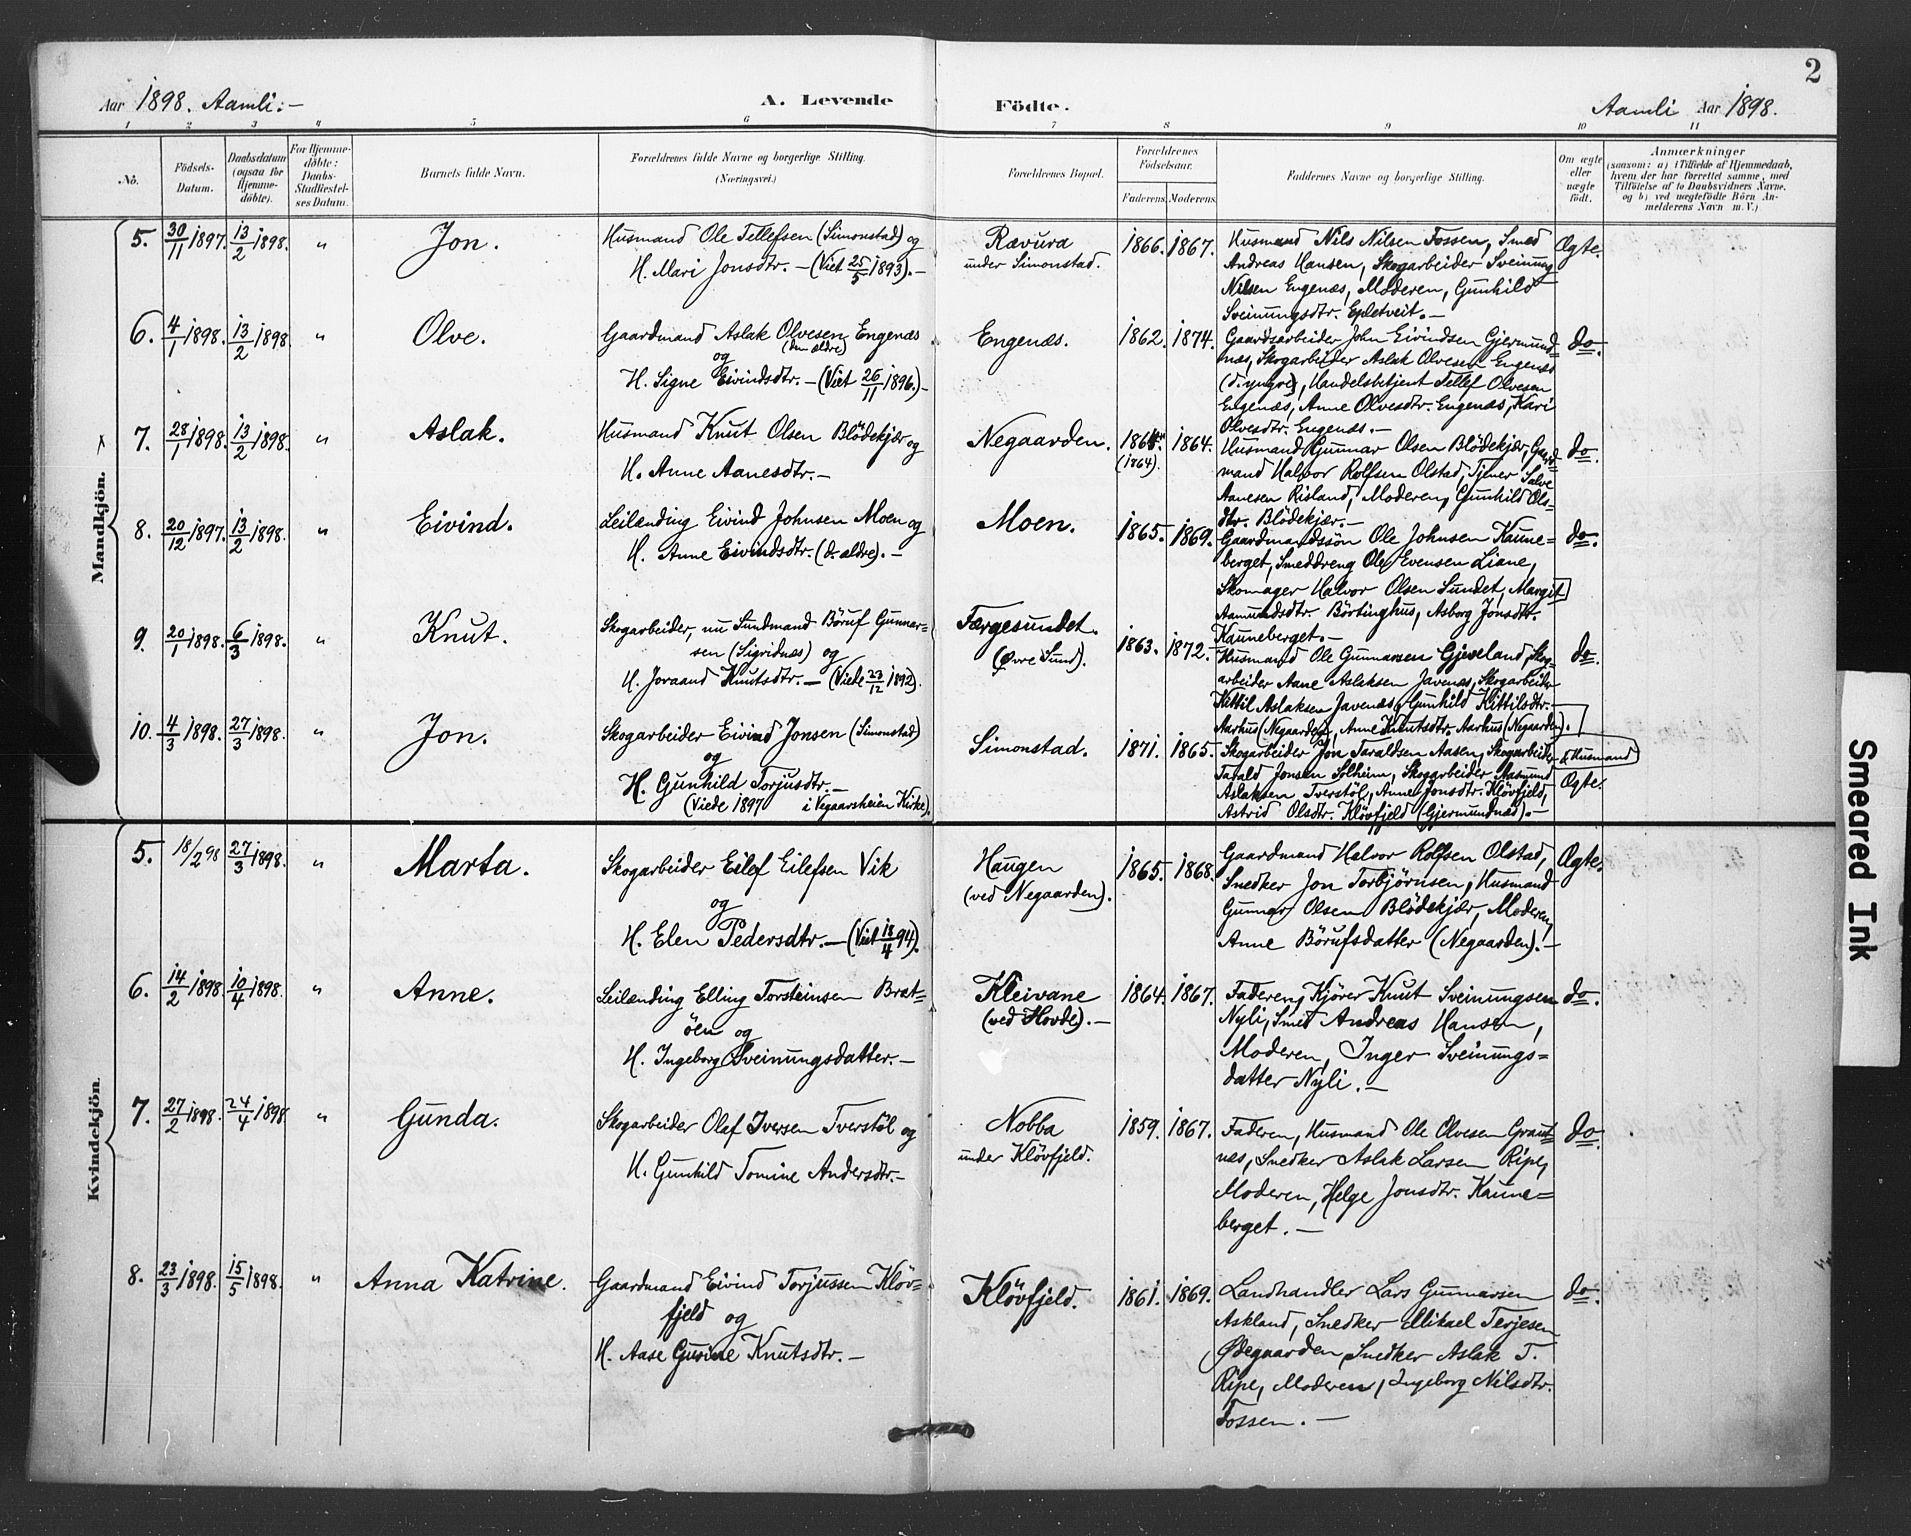 2
Aar 1898. Aamli:-
A. Levende Födte.
Aamli Aar 1898.
1 2 3 4 5 6 7 8 9 10 11
No.
Födsels-
Datum.
Daabsdatum
(ogsaa for
Hjemme-
döbte).
For Hjemme-
döbte:
Daabs-
Stadfæstel-
ses Datum.
Barnets fulde Navn.
Forældrenes fulde Navne og borgerlige Stilling.
(Næringsvei.)
Forældrenes Bopæl.
Forældrenes
Födselsaar.
Faderens. Moderens.
Faddernes Navne og borgerlige Stilling.
Om ægte
eller
uægte
födt.
Anmærkninger
(saasom: a) i Tilfælde af Hjemmedaab,
hvem der har forrettet samme, med
Tilföielse af to Daabsvidners Navne.
og b) ved uægtefödte Börn An-
melderens Navn m. V.)
Mandkjön.
5. 30/11 1897. 13/2 1898. " Jon.
Husmand Ole Tellefsen (Simonstad) og
H. Mari Jonsdtr. - (Viet 25/5 1893). -
Rævura
under Simonstad.
1866. 1867.
Husmand Nils Nilsen Fossen, Smed
Andreas Hansen, Skogarbeider Sveinung
Nilsen Engenæs, Moderen, Gunhild
Sveinungsdtr. Epletveit. -
Ægte.
6. 4/1 1898. 13/2 1898. " Olve.
Gaardmand Aslak Olvesen Engenæs
(den ældre)
og
H. Signe Eivindsdtr. - (Viet 26/11 1896.) -
Engenæs.
1862. 1874.
Gaardsarbeider John Eivindsen Gjermund-
næs, Skogarbeider Aslak Olvesen Engenæs
(d. yngre), Handelsbetjent Tellef Olvesen
Engenæs, Anne Olvesdtr. Engenæs, Kari
Olvesdtr. Engenæs. -
do.
7. 28/1 1898. 13/2 1898. " Aslak.
Husmand Knut Olsen Blödekjær og
H. Anne Aanesdtr. -
Negaarden.
(1864). 1864.
Husmand Gunnar Olsen Blödekjær, Gaard-
mand Halvor Rolfsen Olstad, Tjener Salve
Aanesen Risland, Moderen, Gunhild Ols-
dtr. Blödekjær. -
do.
8. 20/12 1897. 13/2 1898. " Eivind.
Leilænding Eivind Johnsen Moen og
H. Anne Eivindsdtr. (d. ældre). -
Moen.
1865. 1869.
Gaardmandssön Ole Johnsen Kaune-
berget, Smeddreng Ole Evensen Liane,
Skomager Halvor Olsen Sundet, Margit
Aamundsdtr. Börtinghus, Asborg Jonsdtr.
Kauneberget. -
do.
9. 20/1 1898. 6/3 1898. " Knut.
Skogarbeider, nu Sundmand Böruf Gunnar-
sen (Sigridnæs) og
H. Joraand Knutsdtr. - (Viede 27/12 1892).
Færgesundet.
(Øvre Sund).
1863. 1872.
Husmand Ole Gunnarsen Gjeveland, Skog-
arbeider Aane Aslaksen Javenæs, Skogarbeider
Kittil Aslaksen Javenæs, Gunhild Kittilsdtr.
Aarhus (Negaarden), Anne Knutsdtr. Aarhus (Negaarden).
do.
10. 4/3 1898. 27/3 1898. " Jon.
Skogarbeider Eivind Jonsen (Simonstad)
og
H. Gunhild Torjusdtr. -
(Viede 1897 i Vegaarsheien Kirke).
Simonstad.
1871. 1865.
Skogarbeider Jon Taraldsen Aasen, Skogarbeider & Husmand
Tarald Jonsen Solheim, Skogarbeider Aasmund
Aslaksen Tverstöl, Anne Jonsdtr. Klövfjeld,
Astrid Olsdtr. Klövfjeld (Gjermundnæs). -
Ægte.
Kvindekjön.
5. 18/2 98 27/3 1898. " Marta.
Skogarbeider Eilef Eilefsen Vik
og
H. Elen Pedersdtr. - (Viet 13/4 94).
Haugen
(ved Negaarden).
1865. 1868.
Gaardmand Halvor Rolfsen Olstad,
Snedker Jon Torbjørnsen, Husmand
Gunnar Olsen Blödekjær, Moderen,
Anne Börufsdatter (Negaarden). -
Ægte.
6. 14/2 1898. 10/4 1898. " Anne.
Leilænding Elling Torsteinsen Brat-
öen og
H. Ingeborg Sveinungsdatter. -
Kleivane
(ved Hovde). -
1864. 1867.
Faderen, Kjörer Knut Sveinungsen
Nyli, Smed Andreas Hansen,
Moderen, Inger Sveinungs=
datter Nyli. -
do.
7. 27/2 1898. 24/4 1898. " Gunda.
Skogarbeider Olaf Iversen Tverstöl og
H. Gunhild Tomine Andersdtr. -
Nobba
under Klövfjeld.
1859. 1867.
Faderen, Husmand Ole Olvesen Graut-
næs, Snedker Aslak Larsen Ripe,
Moderen, Helge Jonsdtr. Kaune=
berget. -
do.
8. 23/3 1898. 15/5 1898. " Anna Katrine.
Gaardmand Eivind Torjussen Klöv-
fjeld og
H. Aase Gurine Knutsdtr. -
Klövfjeld.
1861. 1869.
Landhandler Lars Gunnarsen
Askland, Snedker Mikael Terjesen
Ødegaarden, Snedker Aslak T.
Ripe, Moderen, Ingeborg Nilsdtr.
Fossen. -
do.
Smeared Ink